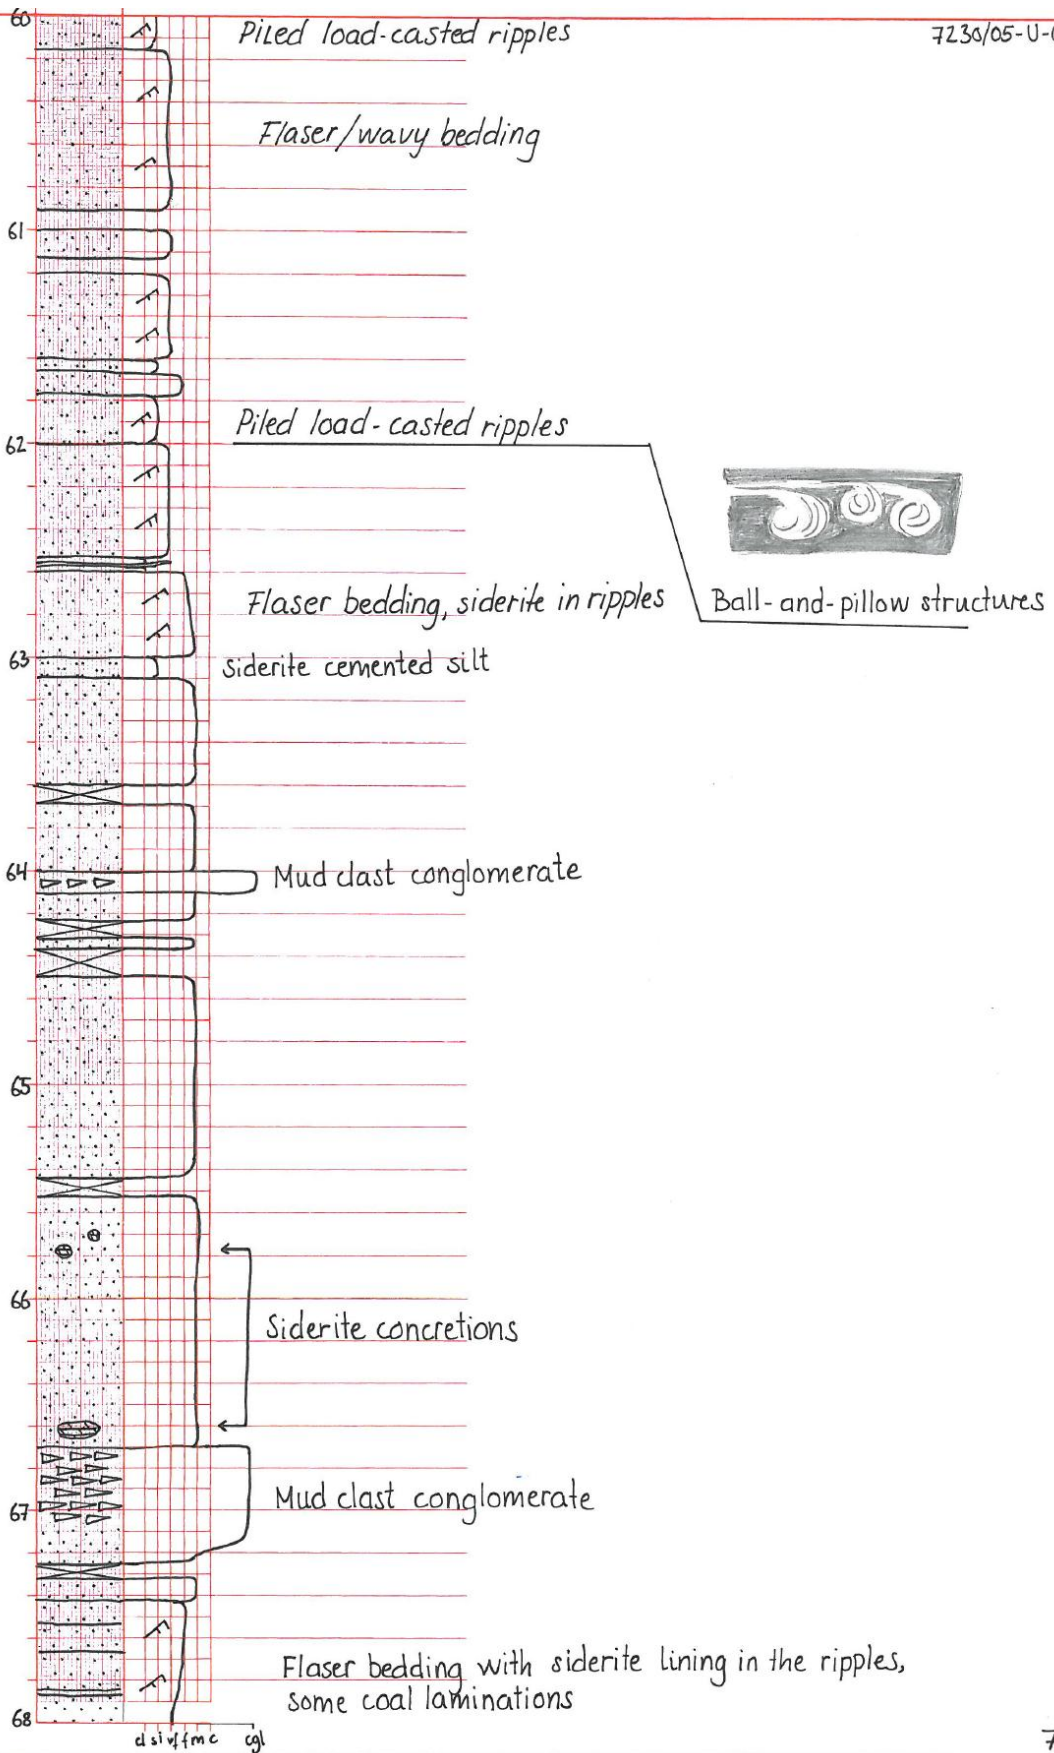 60
Piled load-casted ripples
7230/05-U-
Flaser/wavy bedding
61
Piled load-casted ripples
62
Flaser bedding, siderite in ripples
Ball-and-pillow structures
63
Siderite cemented silt
64
Mud clast conglomerate
65
66
Siderite concretions
Mud clast conglomerate
67
Flaser bedding with siderite lining in the ripples,
some coal laminations
68
cl si vf f m c cgl
7